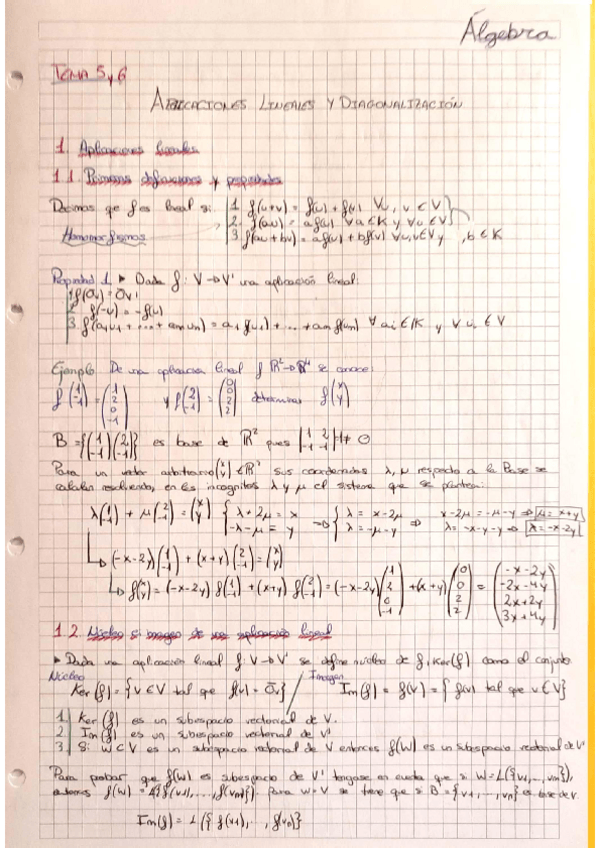 Álgebra
TEMA 5 y 6
APLICACIONES LINEALES Y DIAGONALIZACIÓN
1. Aplicaciones lineales
1.1. Primeras definiciones y propiedades
Decimos que f es lineal si: 1. f(u+v) = f(u) + f(v) ∀u, v ∈ V
2. f(au) = a f(u) ∀a ∈ K y ∀u ∈ V
Homomorfismos 3. f(au + bv) = a f(u) + b f(v) ∀u,v ∈ V y , b ∈ K
Propiedad 1 ▶ Dada f: V → V' una aplicación lineal:
1. f(0v) = 0v'
2. f(-u) = -f(u)
3. f(a1u1 + ... + amum) = a1 f(u1) + ... + am f(um) ∀ ai ∈ K y ∀ ui ∈ V
Ejemplo De una aplicación lineal f R² → R⁴ se conoce:
f(1 -1) = (1 2 0 -1) y f(2 -1) = (0 0 2 2) determinar f(x y)
B = {(1 -1) (2 -1)} es base de R² pues |1 2 -1 -1| = 1 ≠ 0
Para un vector arbitrario (x y) ∈ R² sus coordenadas λ, μ respecto a la Base se
calculan resolviendo, en las incognitas λ y μ el sistema que se plantea:
λ(1 -1) + μ(2 -1) = (x y) { λ + 2μ = x -λ - μ = y ⇒ { λ = x - 2μ λ = -μ - y ⇒ x - 2μ = -μ - y ⇒ μ = x + y
λ = -x - y - y ⇒ λ = -x - 2y
(-x - 2y)(1 -1) + (x + y)(2 -1) = (x y)
f(x y) = (-x - 2y) f(1 -1) + (x + y) f(2 -1) = (-x - 2y)(1 2 0 -1) + (x + y)(0 0 2 2) = (-x - 2y -2x - 4y 2x + 2y 3x + 4y)
1.2. Núcleo e imagen de una aplicación lineal
▶ Dada una aplicación lineal f: V → V' se define núcleo de f, Ker(f) como el conjunto
Núcleo Imagen
Ker(f) = {v ∈ V tal que f(v) = 0v'} Im(f) = f(V) = { f(v) tal que v ∈ V}
1. Ker(f) es un subespacio vectorial de V.
2. Im(f) es un subespacio vectorial de V'
3. Si W ⊂ V es un subespacio vectorial de V entonces f(W) es un subespacio vectorial de V'
Para probar que f(W) es subespacio de V' tengase en cuenta que si W = L({w1, ..., wm}),
entonces f(W) = L({f(w1), ..., f(wm)}). Para W = V se tiene que si B = {v1, ..., vn} es base de V.
Im(f) = L({f(v1), ..., f(vn)})